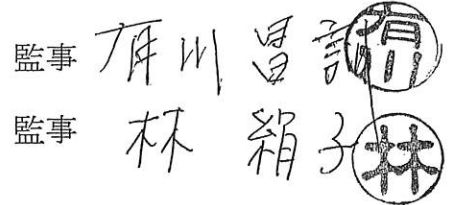 監事 有川 昌 有川
監事 林 絹子 林